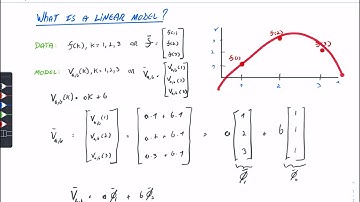 WHAT IS A LINEAR MODEL?
DATA: f(k), k = 1, 2, 3 or f̄ = [f(1) f(2) f(3)]
f(1) f(2) f(3)
1 2 3
MODEL: V_{a,b}(k), k = 1, 2, 3 or V̄_{a,b} = [V_{a,b}(1) V_{a,b}(2) V_{a,b}(3)]
V_{a,b}(k) = ak + b
V̄_{a,b} = [V_{a,b}(1) V_{a,b}(2) V_{a,b}(3)] = [a·1 + b·1 a·2 + b·1 a·3 + b·1] = a [1 2 3] + b [1 1 1]
V̄_{a,b} = a φ̄₁ + b φ̄₂